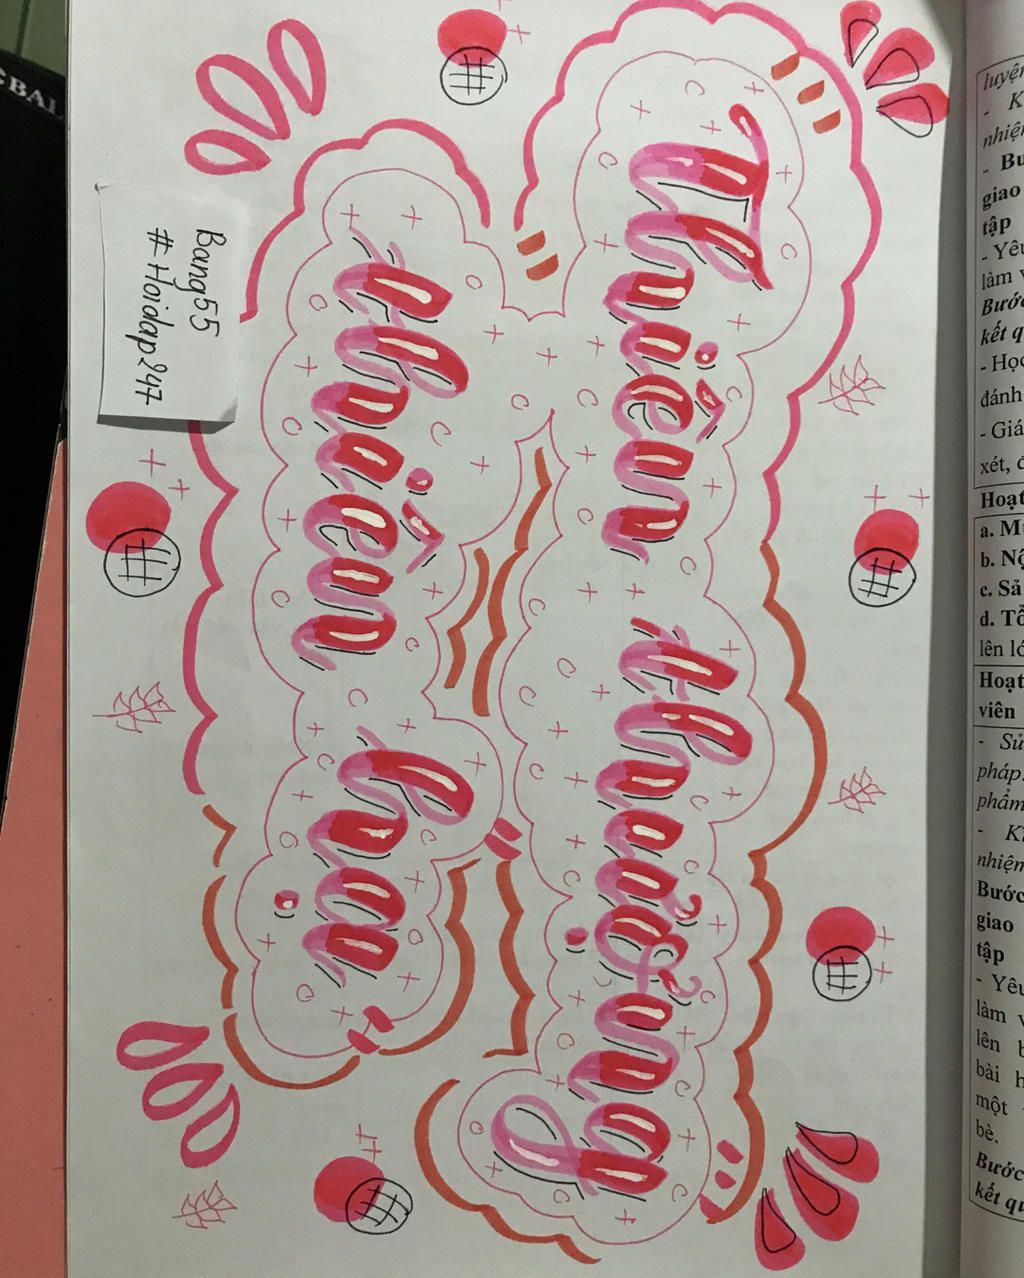 Thiên thượng
thiên hạ
Bang55
#Hoidap247
luyện
- K
nhiệm
giao
tập
- Yêu
làm v
Bước
kết q
- Học
đánh
- Giá
xét, đ
Hoạt
a. M
b. Nộ
c. Sả
d. Tổ
lên lớ
Hoạt
viên
- Sử
pháp,
phẩm
- K
nhiệm
Bước
giao
tập
- Yêu
làm v
lên b
bài h
một
bè.
Bước
kết qu